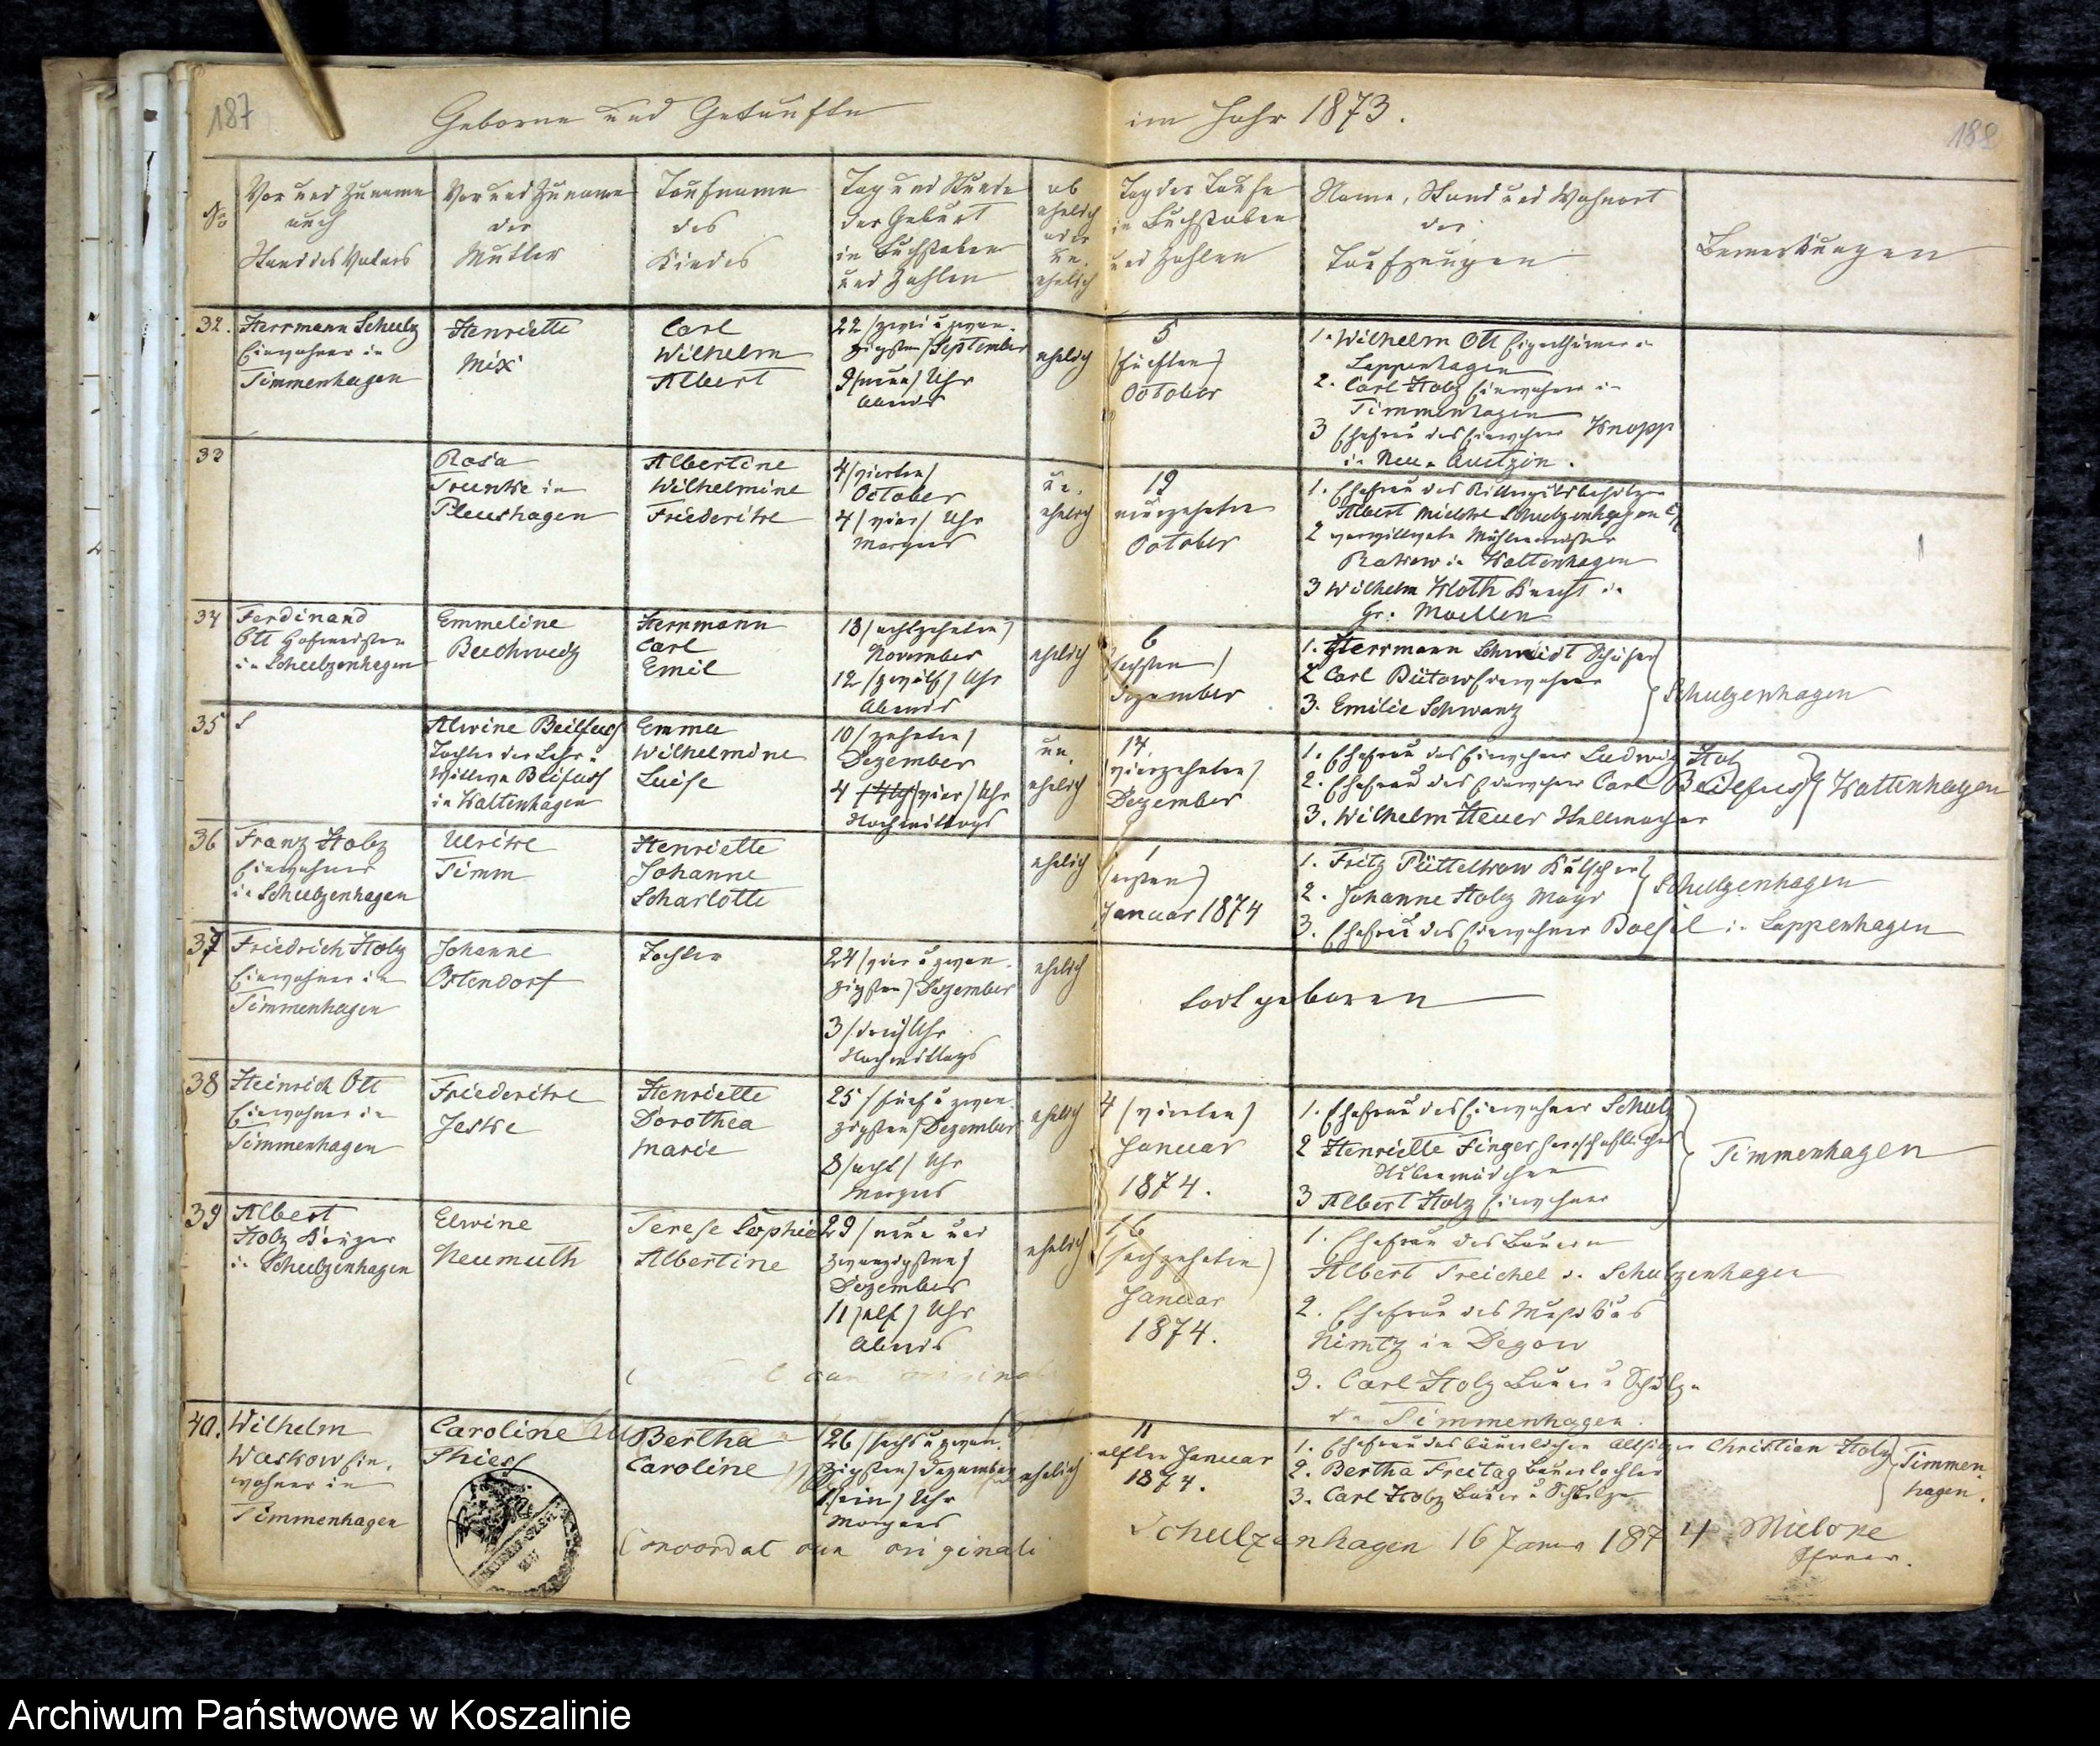 187
Geborne und Getaufte
im Jahr 1873.
188
No
Vor und Zuname
auch
Stand des Vaters
Vor und Zuname
der
Mutter
Taufname
des
Kindes
Tag und Stunde
der Geburt
in Buchstaben
und Zahlen
ob
ehelich
oder
un-
ehelich
Tag der Taufe
in Buchstaben
und Zahlen
Name, Stand und Wohnort
der
Taufzeugen
Bemerkungen
32.
Herrmann Schulz
Einwohner in
Timmenhagen
Henriette
Mix
Carl
Wilhelm
Albert
22 (zwei u zwan-
zigsten) September
9 (neun) Uhr
Abends
ehelich
5
(fünften)
October
1. Wilhelm Ott Eigenthümer in
Lappenhagen
2. Carl Holz Einwohner in
Timmenhagen
3 Ehefrau des Einwohner Knopp
in Neu-Quetzin.
33
Rosa
in
Pleushagen
Albertine
Wilhelmine
Friederike
4 (vierten)
October
4 (vier) Uhr
Morgens
un-
ehelich
19
neunzehnten
October
1. Ehefrau des Rittergutsbesitzer
Albert Mielke Schulzenhagen
2 verwittwete Mühlenmeister
Rakow in Kaltenhagen
3 Wilhelm Kloth Knecht in
Gr. Moellen
34
Ferdinand
Ott Hofmeister
in Schulzenhagen
Emmeline
Buchweiz
Herrmann
Carl
Emil
18 (achtzehnten)
November
12 (zwölf) Uhr
Abends
ehelich
6
(sechsten)
Dezember
1. Herrmann Schmidt Schäfer
2 Carl Bütow Einwohner
3. Emilie Schwanz
Schulzenhagen
35
Alwine Beilfuss
Tochter der Lehr-
Wittwe Beilfuss
in Kaltenhagen
Emma
Wilhelmine
Luise
10 (zehnten)
Dezember
4 (vier) Uhr
Nachmittags
un-
ehelich
14.
(vierzehnten)
Dezember
1. Ehefrau des Einwohner Ludwig Holz
2. Ehefrau des Einwohner Carl Beilfuss
3. Wilhelm Heuer Stellmacher
Kaltenhagen
36
Franz Holz
Einwohner
in Schulzenhagen
Ulrike
Timm
Henriette
Johanne
Scharlotte
ehelich
1
(ersten)
Januar 1874
1. Fritz Püttelkow Kutscher
2. Johanne Holz Magd
Schulzenhagen
3. Ehefrau des Einwohner Boesel in Lappenhagen
37
Friedrich Holz
Einwohner in
Timmenhagen
Johanne
Ostendorf
Tochter
24 (vier u zwan-
zigsten) Dezember
3 (drei) Uhr
Nachmittags
ehelich
todtgeboren
38
Heinrich Ott
Einwohner in
Timmenhagen
Friederike
Jeske
Henriette
Dorothea
Marie
25 (fünf u zwan-
zigsten) Dezember
8 (acht) Uhr
Morgens
ehelich
4 (vierten)
Januar
1874.
1. Ehefrau des Einwohner Schulz
2 Henriette Finger herrschaftliches
Stubenmädchen
3 Albert Holz Einwohner
Timmenhagen
39
Albert
Holz Krüger
in Schulzenhagen
Elwine
Neumuth
Terese Sophie
Albertine
29 (neun und
zwanzigsten)
Dezember
11 (elf) Uhr
Abends
ehelich
16
(sechzehnten)
Januar
1874.
1. Ehefrau des Bauern
Albert Treichel in Schulzenhagen
2. Ehefrau des Musikus
Nimtz in Degow
3. Carl Holz Bauer u Schulze
in Timmenhagen.
40.
Wilhelm
Waskow Ein-
wohner in
Timmenhagen
Caroline
Bertha
Caroline
26 (sechs u zwan-
zigsten) Dezember
1 (ein) Uhr
Morgens
ehelich
11
elften Januar
1874.
1. Ehefrau des bäuerlichen Altsitzer Christian Holz
2. Bertha Freitag Bauerntochter
3. Carl Holz Bauer u Schulze
Timmen-
hagen.
Concordat cum originali
Schulzenhagen 16 Januar 1874
Pfarrer.
Archiwum Państwowe w Koszalinie